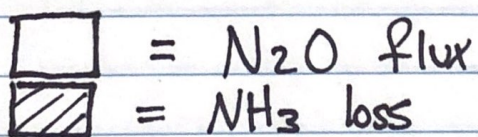 = N2O flux
= NH3 loss